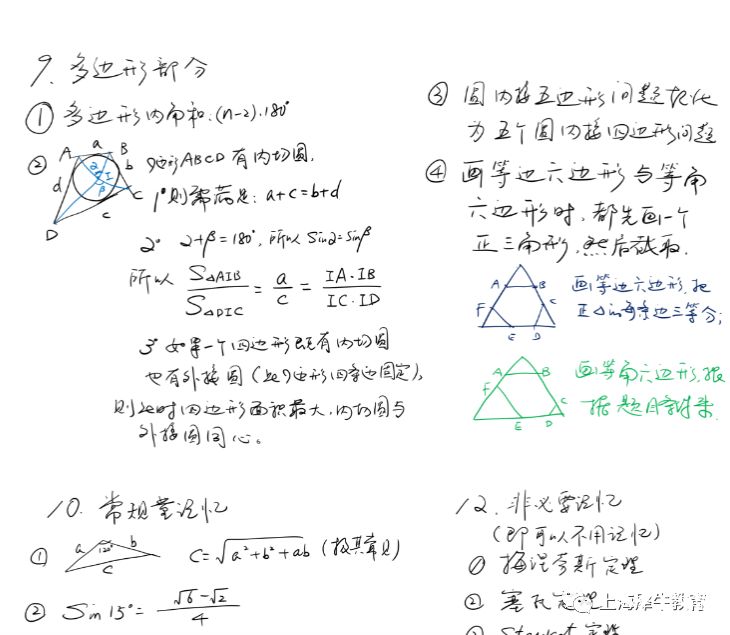 9. 多边形部分
① 多边形内角和: (n-2)·180°
② A a B b C c D d I α β
四边形ABCD有内切圆,
1° 则需满足: a+c=b+d
2° α+β=180°, 所以 Sinα=Sinβ
所以 S△AIB/S△DIC = a/c = IA·IB/IC·ID
3° 如果一个四边形既有内切圆
也有外接圆 (此四边形四条边固定),
则此时四边形面积最大, 内切圆与
外接圆同心。
③ 圆内接五边形问题转化
为五个圆内接四边形问题
④ 画等边六边形与等角
六边形时, 都先画一个
正三角形, 然后截取.
A B C D E F
画等边六边形, 把
正△的每条边三等分;
A B C D E F
画等角六边形, 根
据题目条件来
10. 常规量记忆
① a b c 120° C=√(a²+b²+ab) (极其常见)
② Sin 15°= (√6-√2)/4
12. 非必要记忆
(即可以不用记忆)
① 梅涅劳斯定理
② 塞瓦定理
③ Stewart 定理
上海犀牛教育